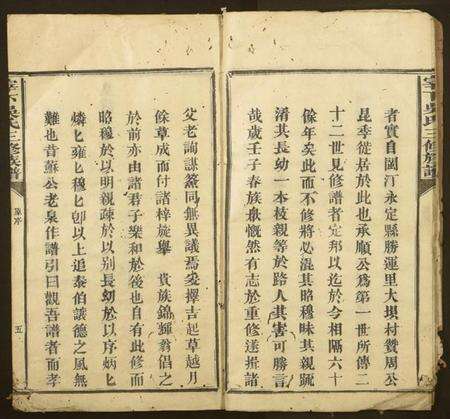 宰下吳氏三修族譜
者實自閩汀永定縣勝運里大壩村贊周公
昆季從居於此也承順公為第一世所傳二
十二世見修譜者定邦以迄於今相隔六十
餘年矣此而不修將必混其昭穆昧其親疏
淆其長幼一本枝親等於路人其害可勝言
哉歲壬子春族衆慨然有志於重修遂揖諸
父老詢謀簽同無異議焉爰擇吉起草越月
餘草成而付諸梓旋舉 貴族錦輝翁倡之
於前亦由諸君子樂和於後也自有此修而
昭穆於以明親疎於以別長幼於以序炳匕
燐匕雍匕穆匕卽以上追泰伯讓德之風無
難也昔蘇公老泉作譜引曰觀吾譜者而孝
宰下吳氏三修族譜
五